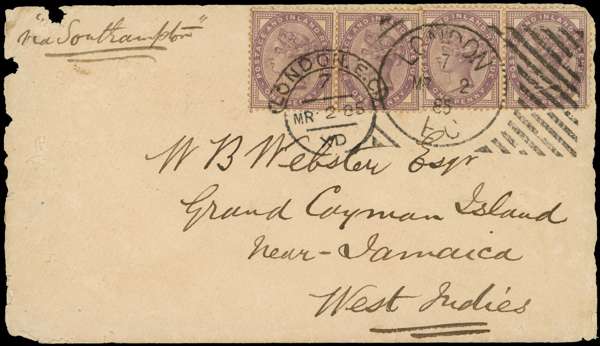 "via Southampton"
POSTAGE AND INLAND
POSTAGE AND INLAND
LONDON E.C
7
MR 2 85
LONDON
7
MR 2
85
E.C
W B Webster Esqr
Grand Cayman Island
Near Jamaica
West Indies